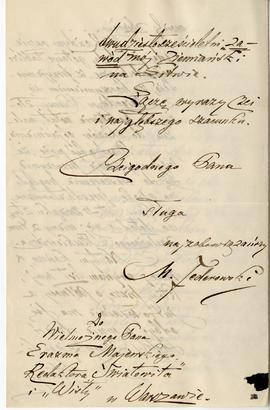 dwudziestosześcioletni za-
wód mój ziemiański
na Litwie.
Łączę wyrazy czci
i najgłębszego szacunku.
Czcigodnego Pana
sługa
najzobowiązańszy
M. Federowski
Do
Wielmożnego Pana
Erazma Majewskiego,
Redaktora "Światowita"
i "Wisły"
w Warszawie.